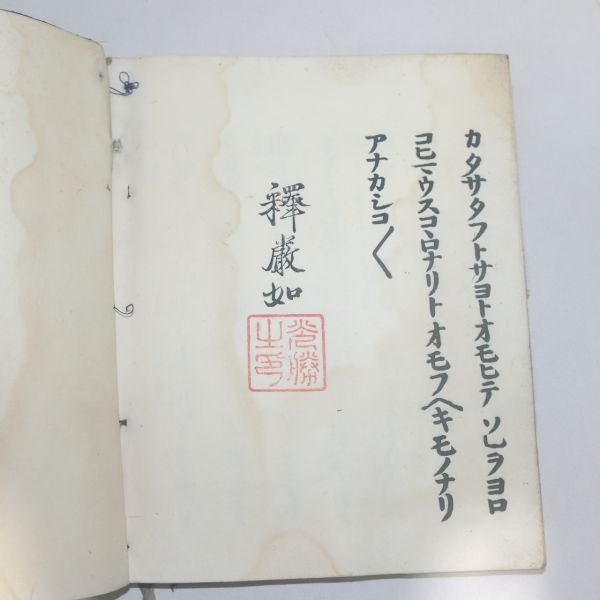 カタサタフトサヨトオモヒテソレヲヨロ
コヒマウスコヽロナリトオモフヘキモノナリ
アナカシコ〱
釋嚴如
光勝之印